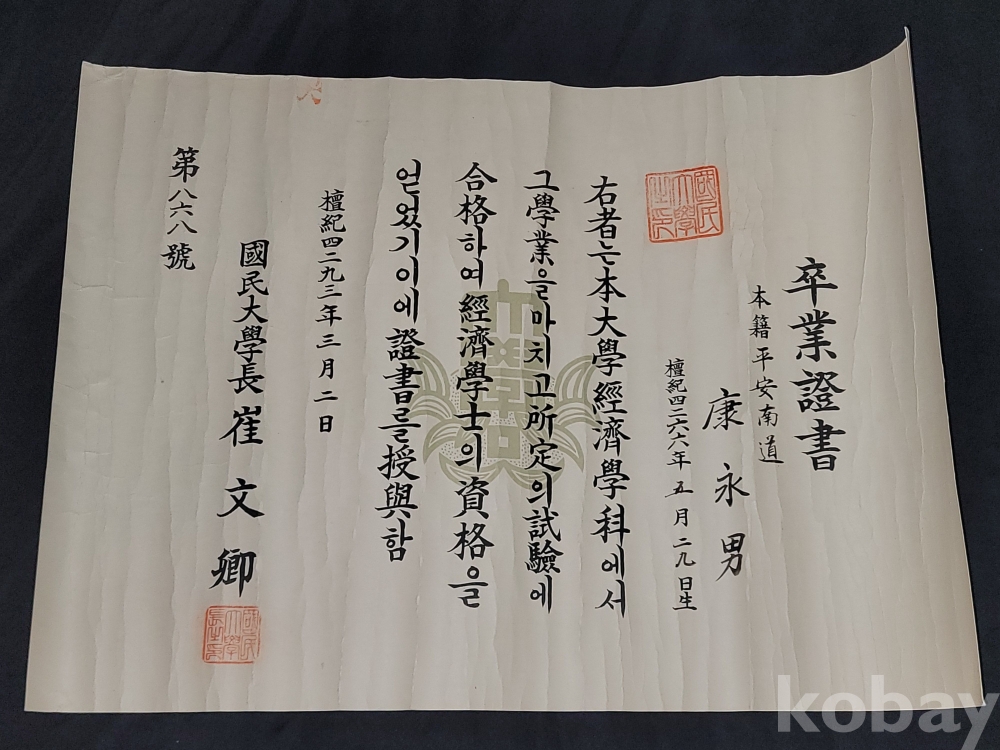 卒業證書
本籍 平安南道
康永男
檀紀四二六六年 五月二九日生
右者는本大學經濟學科에서
그學業을마치고所定의試驗에
合格하여經濟學士의資格을
얻었기이에證書를授與함
檀紀四二九三年三月二日
國民大學長崔文卿
第八六八號
國民大學之印
大學
kobay